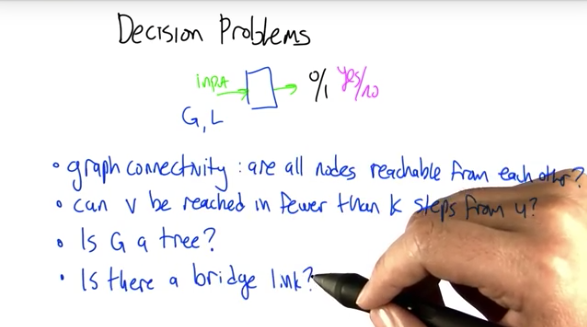 Decision Problems
input
0/1 yes/no
G, L
• graph connectivity : are all nodes reachable from each other?
• can v be reached in fewer than k steps from u?
• Is G a tree?
• Is there a bridge link?